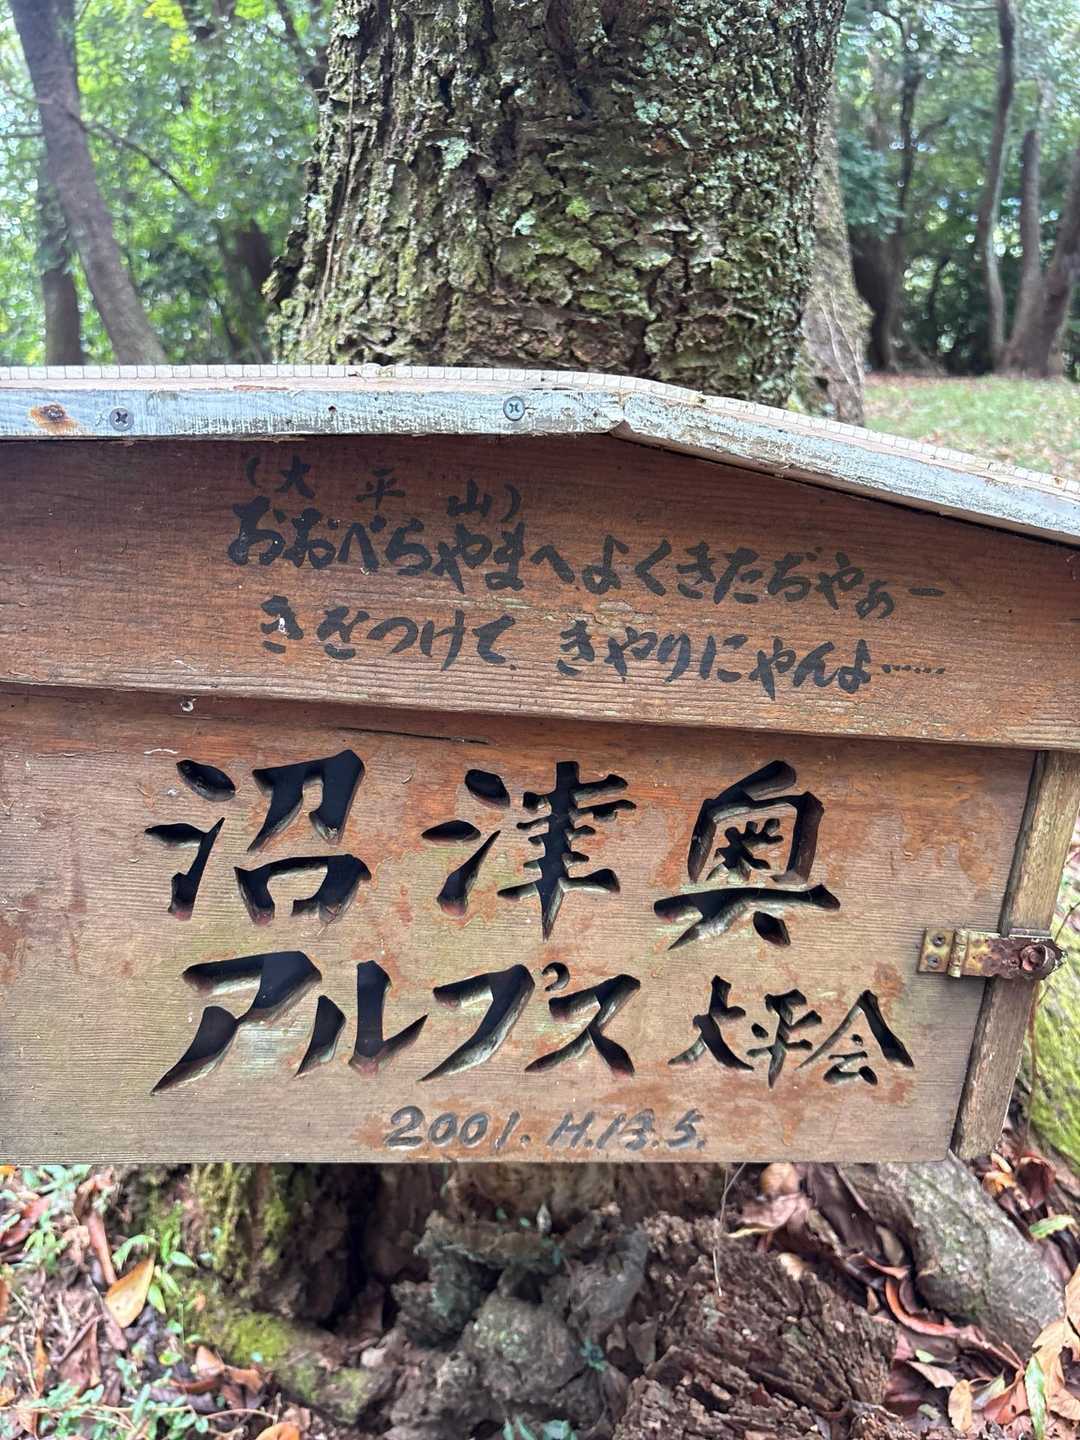 (大平山)
おおべらやまへ、よくきたぢやぁー
きをつけて、きやりにゃんよ……
沼津奥
アルプス大平会
2001. H.13.5.